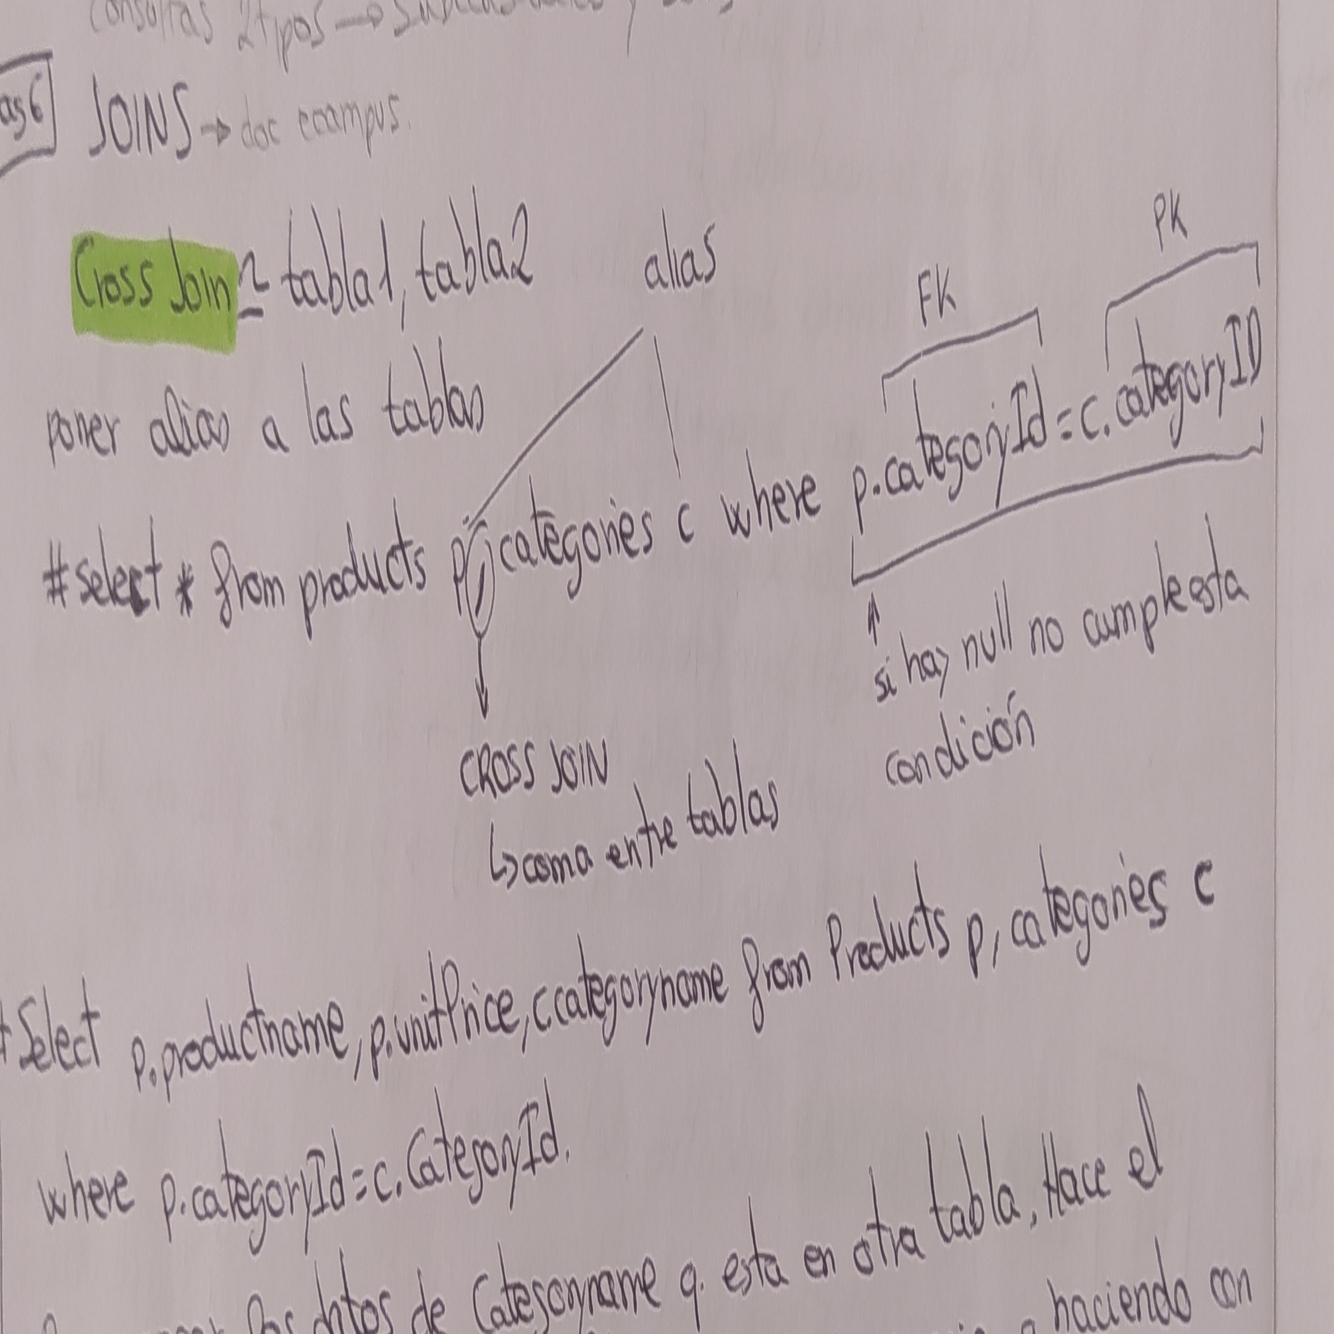 Consultas 2 tipos →
JOINS → doc ecampus.
Cross Join ≃ tabla1, tabla2
alias
FK
PK
poner alias a las tablas
#select * from products p, categories c where p.categoryId = c.categoryID
si hay null no cumple esta
condición
CROSS JOIN
↳ coma entre tablas
Select p.productname, p.unitPrice, c.categoryname from Products p, categories c
where p.categoryId = c.CategoryId.
los datos de Categoryname q. esta en otra tabla, Hace el
haciendo con